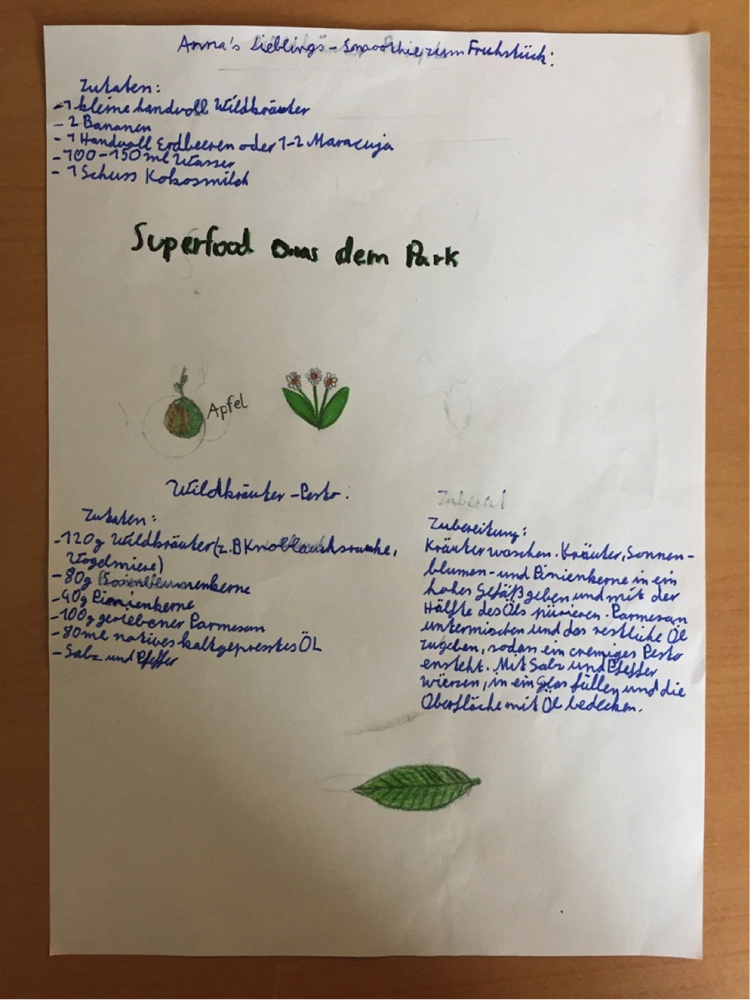 Anna's Lieblings-Smoothie zum Frühstück:
Zutaten:
-1 kleine handvoll Wildkräuter
- 2 Bananen
- 1 Handvoll Erdbeeren oder 1-2 Maracuja
-100-150 ml Wasser
- 1 Schuss Kokosmilch
Superfood aus dem Park
Apfel
Wildkräuter-Pesto.
Zutaten:
-120g Wildkräuter (z.B Knoblauchsrauke,
Vogelmiere)
-80g Sonnenblumenkerne
-40g Pinienkerne
-100g geriebener Parmesan
-80ml natives kaltgepresstes ÖL
-Salz und Pfeffer
Zubereitung:
Kräuter waschen. Kräuter, Sonnen-
blumen- und Pinienkerne in ein
hohes Gefäß geben und mit der
Hälfte des Öls pürieren. Parmesan
untermischen und das restliche Öl
zugeben, sodass ein cremiges Pesto
ensteht. Mit Salz und Pfeffer
würzen, in ein Glas füllen und die
Oberfläche mit Öl bedecken.